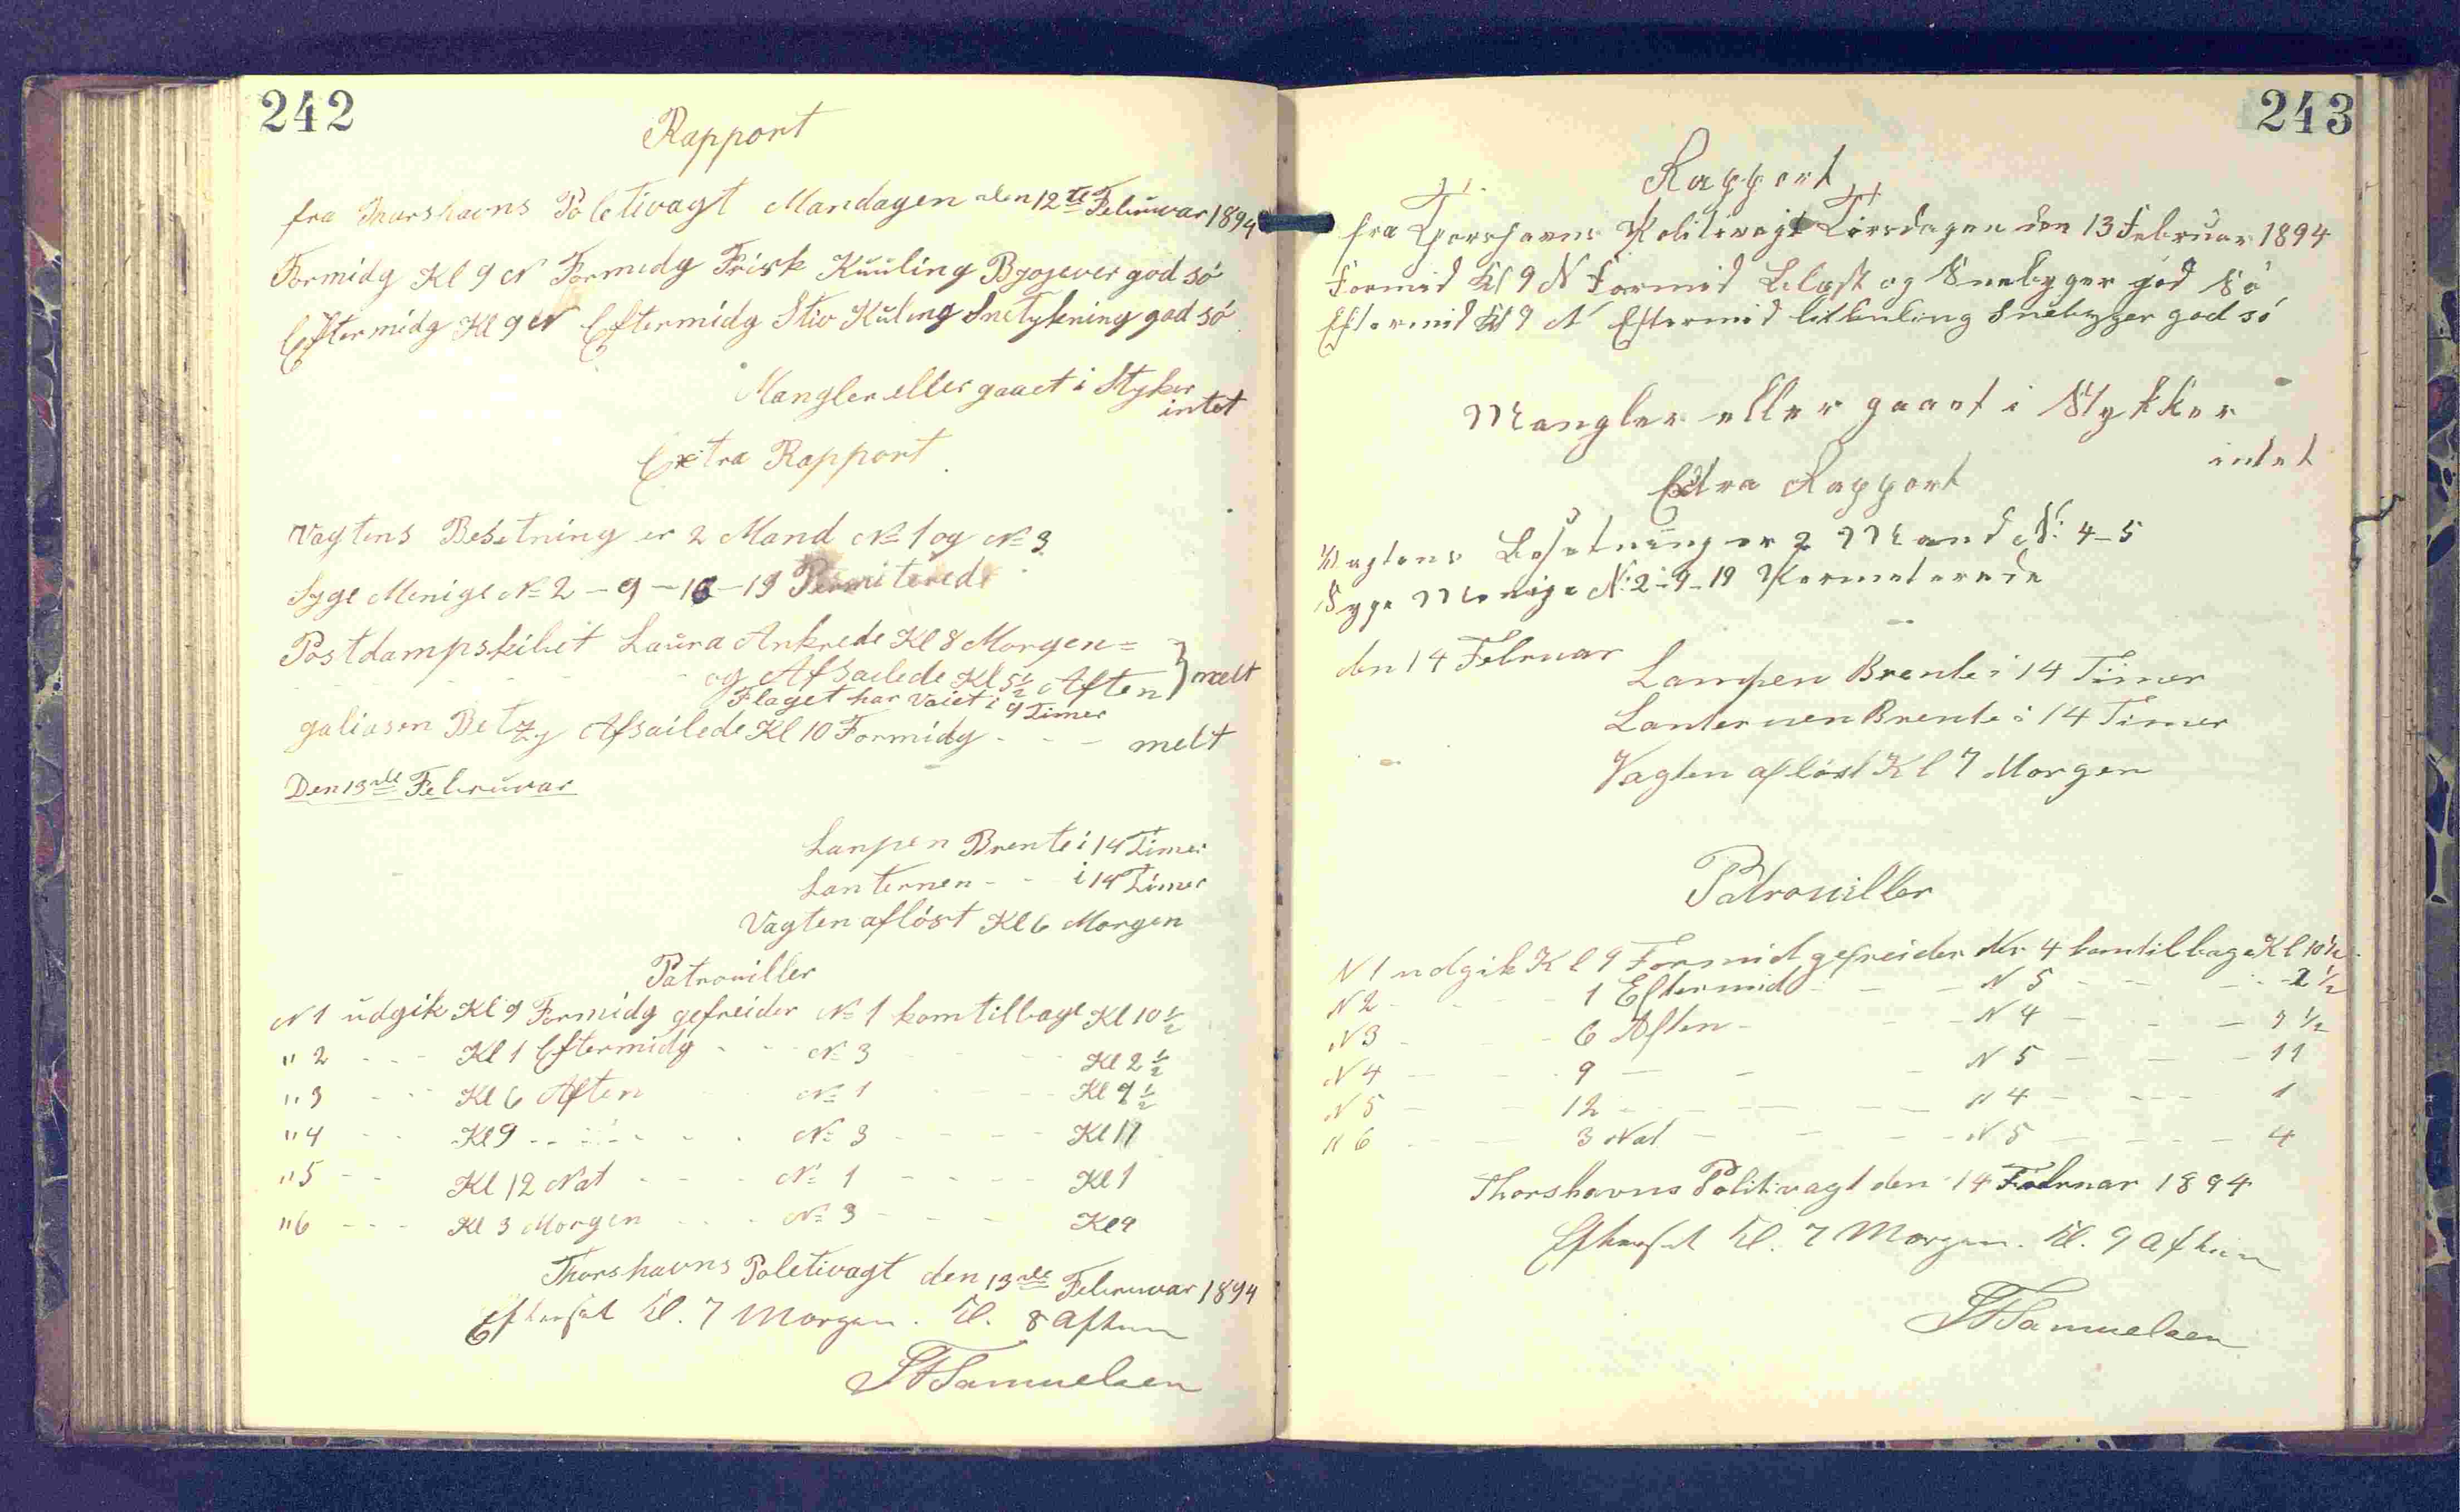 242
Rapport
fra Thorshavns Poletivagt Mandagen den 12te Februwar 1894
Formidg Kl 9 N Formidg Frisk Kuuling Byojever god só
Eftermidg Kl 9 N Eftermidg Stiv Kuling Snetykning god só
Mangler eller gaaet i Styker
intet
Extra Rapport
Vagtens Besetning er 2 Mand No 1 og No 3
Syge Menige No 2 - 9 - 16 - 19 Permiterede
Postdampskibet Laura Ankrede Kl 8 Morgen =
og Afsailede Kl 5½ Aften } mælt
Flaget har Vaiet i 9 Timer
galiasen Betzy Afsailede Kl 10 Formidg - - - melt
Den 13de Februwar
Lanpen Brente i 14 Timer
Lanternen - - i 14 Timer
Vagten aflóst Kl 6 Morgen
Patrouiller
N 1 udgik Kl 9 Formidg gefreider No 1 kom tilbage Kl 10½
" 2 - - - Kl 1 Eftermidg - - - No 3 Kl 2½
" 3 - - Kl 6 Aften No 1 - - - Kl 9½
" 4 - - Kl 9 - - - - - - No 3 - - - - Kl 11
" 5 - - Kl 12 Nat - - - No 1 - - - - Kl 1
" 6 - - - Kl 3 Morgen - - - No 3 - - - Kl 4
Thorshavns Poletivagt den 13de Februwar 1894
Efterset Kl. 7 Morgen. Kl. 8 Aften
Samuelsen
243
Rapport
fra Thorshavns Politivagt Tirsdagen den 13 Februar 1894
Formid Kl 9 N Formid Blæst og Snebyger god Só
Eftermid Kl 9 N Eftermid litkuling Snebyger god só
Mangler eller gaaet i Stykker
intet
Extra Rapport
Vagtens Besetning er 2 Mand N: 4-5
Syge Menige N: 2 - 9 - 19 Permeterede
den 14 Februar
Lampen Brente i 14 Timer
Lanternen Brente i 14 Timer
Vagten aflóst Kl 7 Morgen
Patrouiller
N 1 udgik Kl 9 Formid gefreider Nr 4 kom tilbage Kl 10½
N 2 - - - 1 Eftermid - - - N 5 - - - - 2½
N 3 - - - 6 Aften - - - N 4 - - - 7½
N 4 - - - 9 - - - N 5 - - - 11
N 5 - - 12 - - - - N 4 - - - 1
N 6 - - - 3 Nat - - - N 5 - - - - 4
Thorshavns Politivagt den 14 Februar 1894
Efterset Kl. 7 Morgen. Kl. 9 Aften
Samuelsen